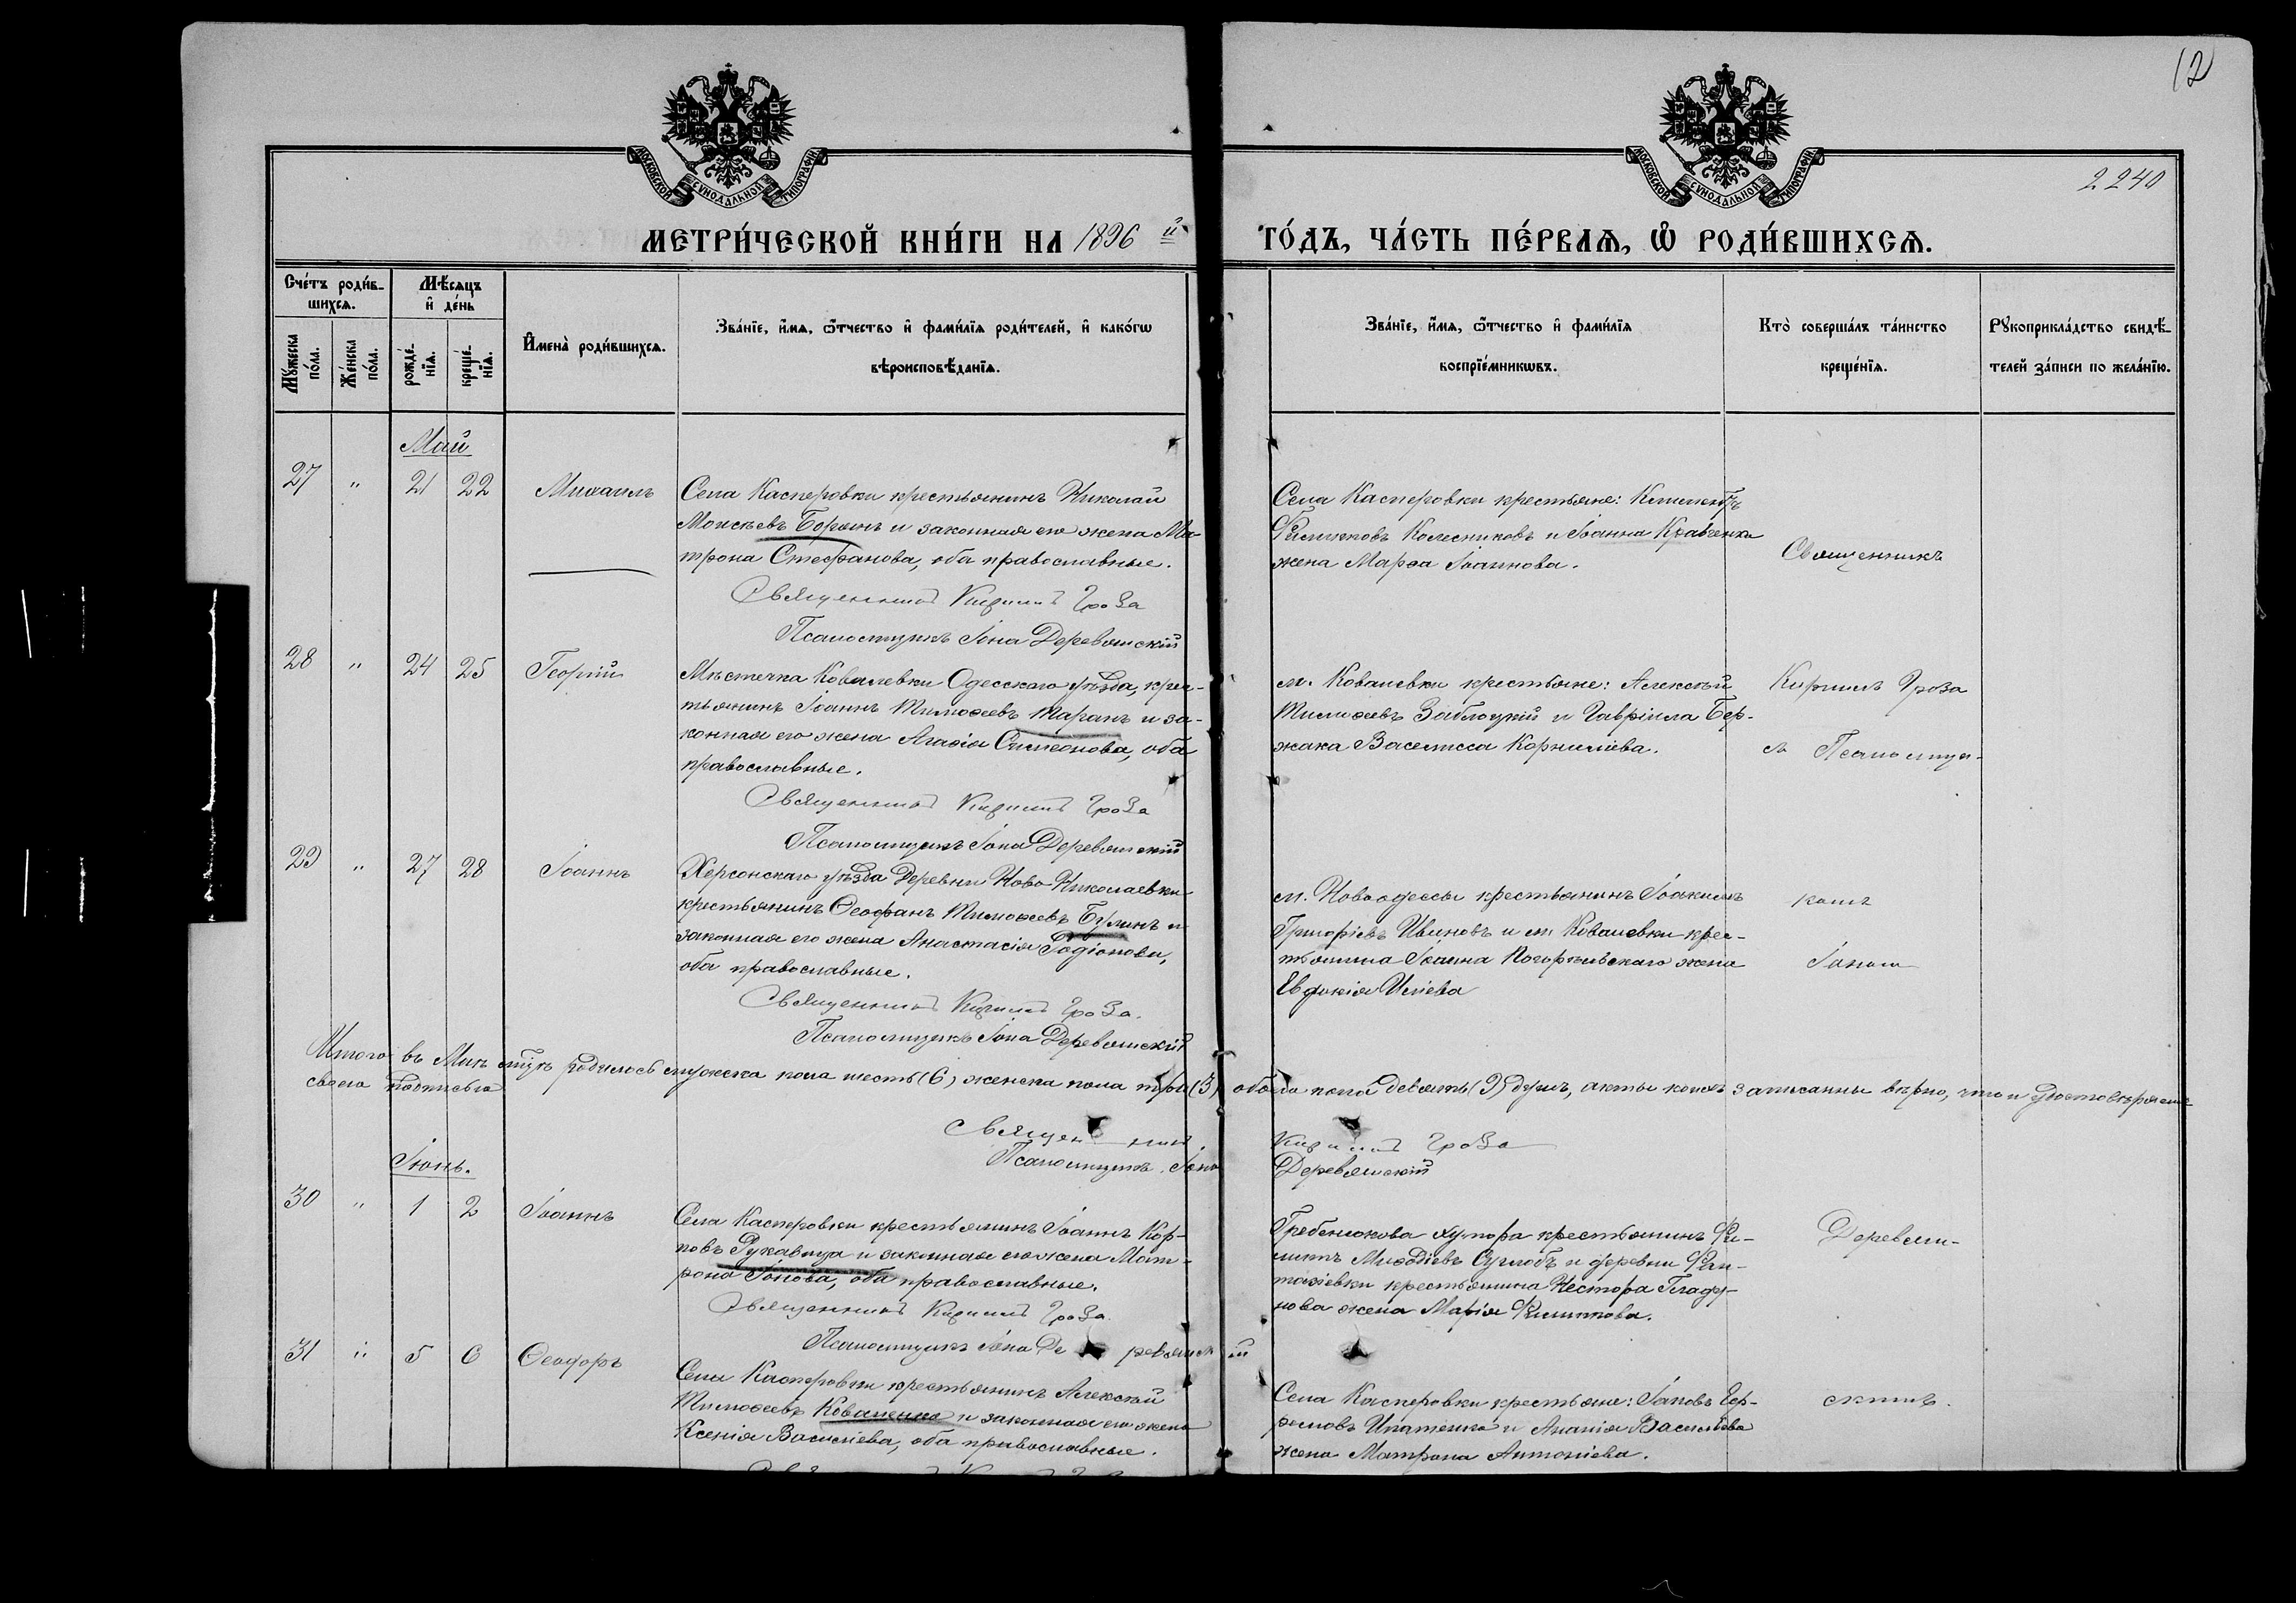 12
МОСКОВСКОЙ СѴНОДАЛЬНОЙ ТИПОГРАФІИ.
МОСКОВСКОЙ СѴНОДАЛЬНОЙ ТИПОГРАФІИ.
2240
МЕТРИ́ЧЕСКОЙ КНИ́ГИ НА 1896 й
ГО́ДЪ, ЧА́СТЬ ПЕ́РВАѦ, Ѡ҆ РОДИ́ВШИХСѦ.
Сче́тъ роди́в-
шихсѧ.
Мѣ́сяцъ
и҆ де́нь
Мꙋ́жеска
по́ла.
Же́нска
по́ла.
рожде́-
нїѧ.
креще́-
нїѧ.
И҆мена̀ роди́вшихсѧ.
Зва́нїе, и҆́мѧ, ѻ҆́тчество и҆ фами́лїѧ роди́телей, и҆ како́гѡ
вѣроисповѣ́данїѧ.
Зва́нїе, и҆́мѧ, ѻ҆́тчество и҆ фами́лїѧ
воспрїе́мникѡвъ.
Кто̀ соверша́лъ та́инство
креще́нїѧ.
Рꙋкоприкла́дство свидѣ́-
телей за́писи по жела́нїю.
Май
27 " 21 22 Михаилъ
Села Касперовки крестьянинъ Николай
Моисѣевъ и законная его жена Ма-
трона Стефанова, оба православные.
Священникъ Кириллъ Гроза
Псаломщикъ Іона Деревянскій
Села Касперовки крестьяне: Климентъ
Филипповъ Колесниковъ и Іоанна Кравченка
жена Марѳа Іоаннова.
Священникъ
28 " 24 25 Георгій
Мѣстечка Ковалевки Одесскаго уѣзда, крес-
тьянинъ Іоаннъ Тимоѳеевъ Таранъ и за-
конная его жена Агаѳія Симеонова, оба
православные.
Священникъ Кириллъ Гроза
Псаломщикъ Іона Деревянскій
м. Ковалевки крестьяне: Алексѣй
Тимоѳеевъ Заблоцкій и Гавріила Бер-
жака Василисса Корниліева.
Кириллъ Гроза
съ Псаломщи-
29 " 27 28 Іоаннъ
Херсонскаго уѣзда деревни Ново-Николаевки
крестьянинъ Ѳеофанъ Тимоѳеевъ Булинъ и
законная его жена Анастасія Родіонова,
оба православные.
Священникъ Кириллъ Гроза.
Псаломщикъ Іона Деревянскій
м. Новоодессы крестьянинъ Іоакимъ
Григоріевъ Ивановъ и м. Ковалевки крес-
тьянина Іоанна жена
Евдокія Иліева
комъ
Іоною
Итого въ Маѣ м-цѣ родилось мужеска пола шесть (6) женска пола три (3) обоего пола девять (9) душъ, акты коихъ записанны вѣрно, что и удостовѣряемъ
своею подписью
Священникъ Кириллъ Гроза
Псаломщикъ Іона Деревянскій
Іюнь.
30 " 1 2 Іоаннъ
Села Касперовки крестьянинъ Іоаннъ Кар-
повъ Рукавица и законная его жена Мат-
рона Іонова, оба православные.
Священникъ Кириллъ Гроза.
Псаломщикъ Іона Деревянскій
Гребенюкова хутора крестьянинъ Фи-
липпъ и деревни
крестьянина Нестора Гладу-
нова жена Марія Филиппова.
Деревян-
31 " 5 6 Ѳеодоръ
Села Касперовки крестьянинъ Алексѣй
Тимоѳеевъ Коваленко и законная его жена
Ксенія Василіева, оба православные.
Села Касперовки крестьяне: Іаковъ Еф-
ремовъ Игнатенко и Ананія Васильева
жена Матрона Антоніева.
скимъ.